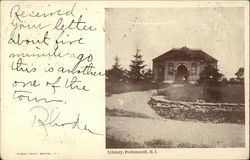 Received
your letter
about five
minute ago
this is another
one of the
town.
Rhoda
Library, Portsmouth, R. I.